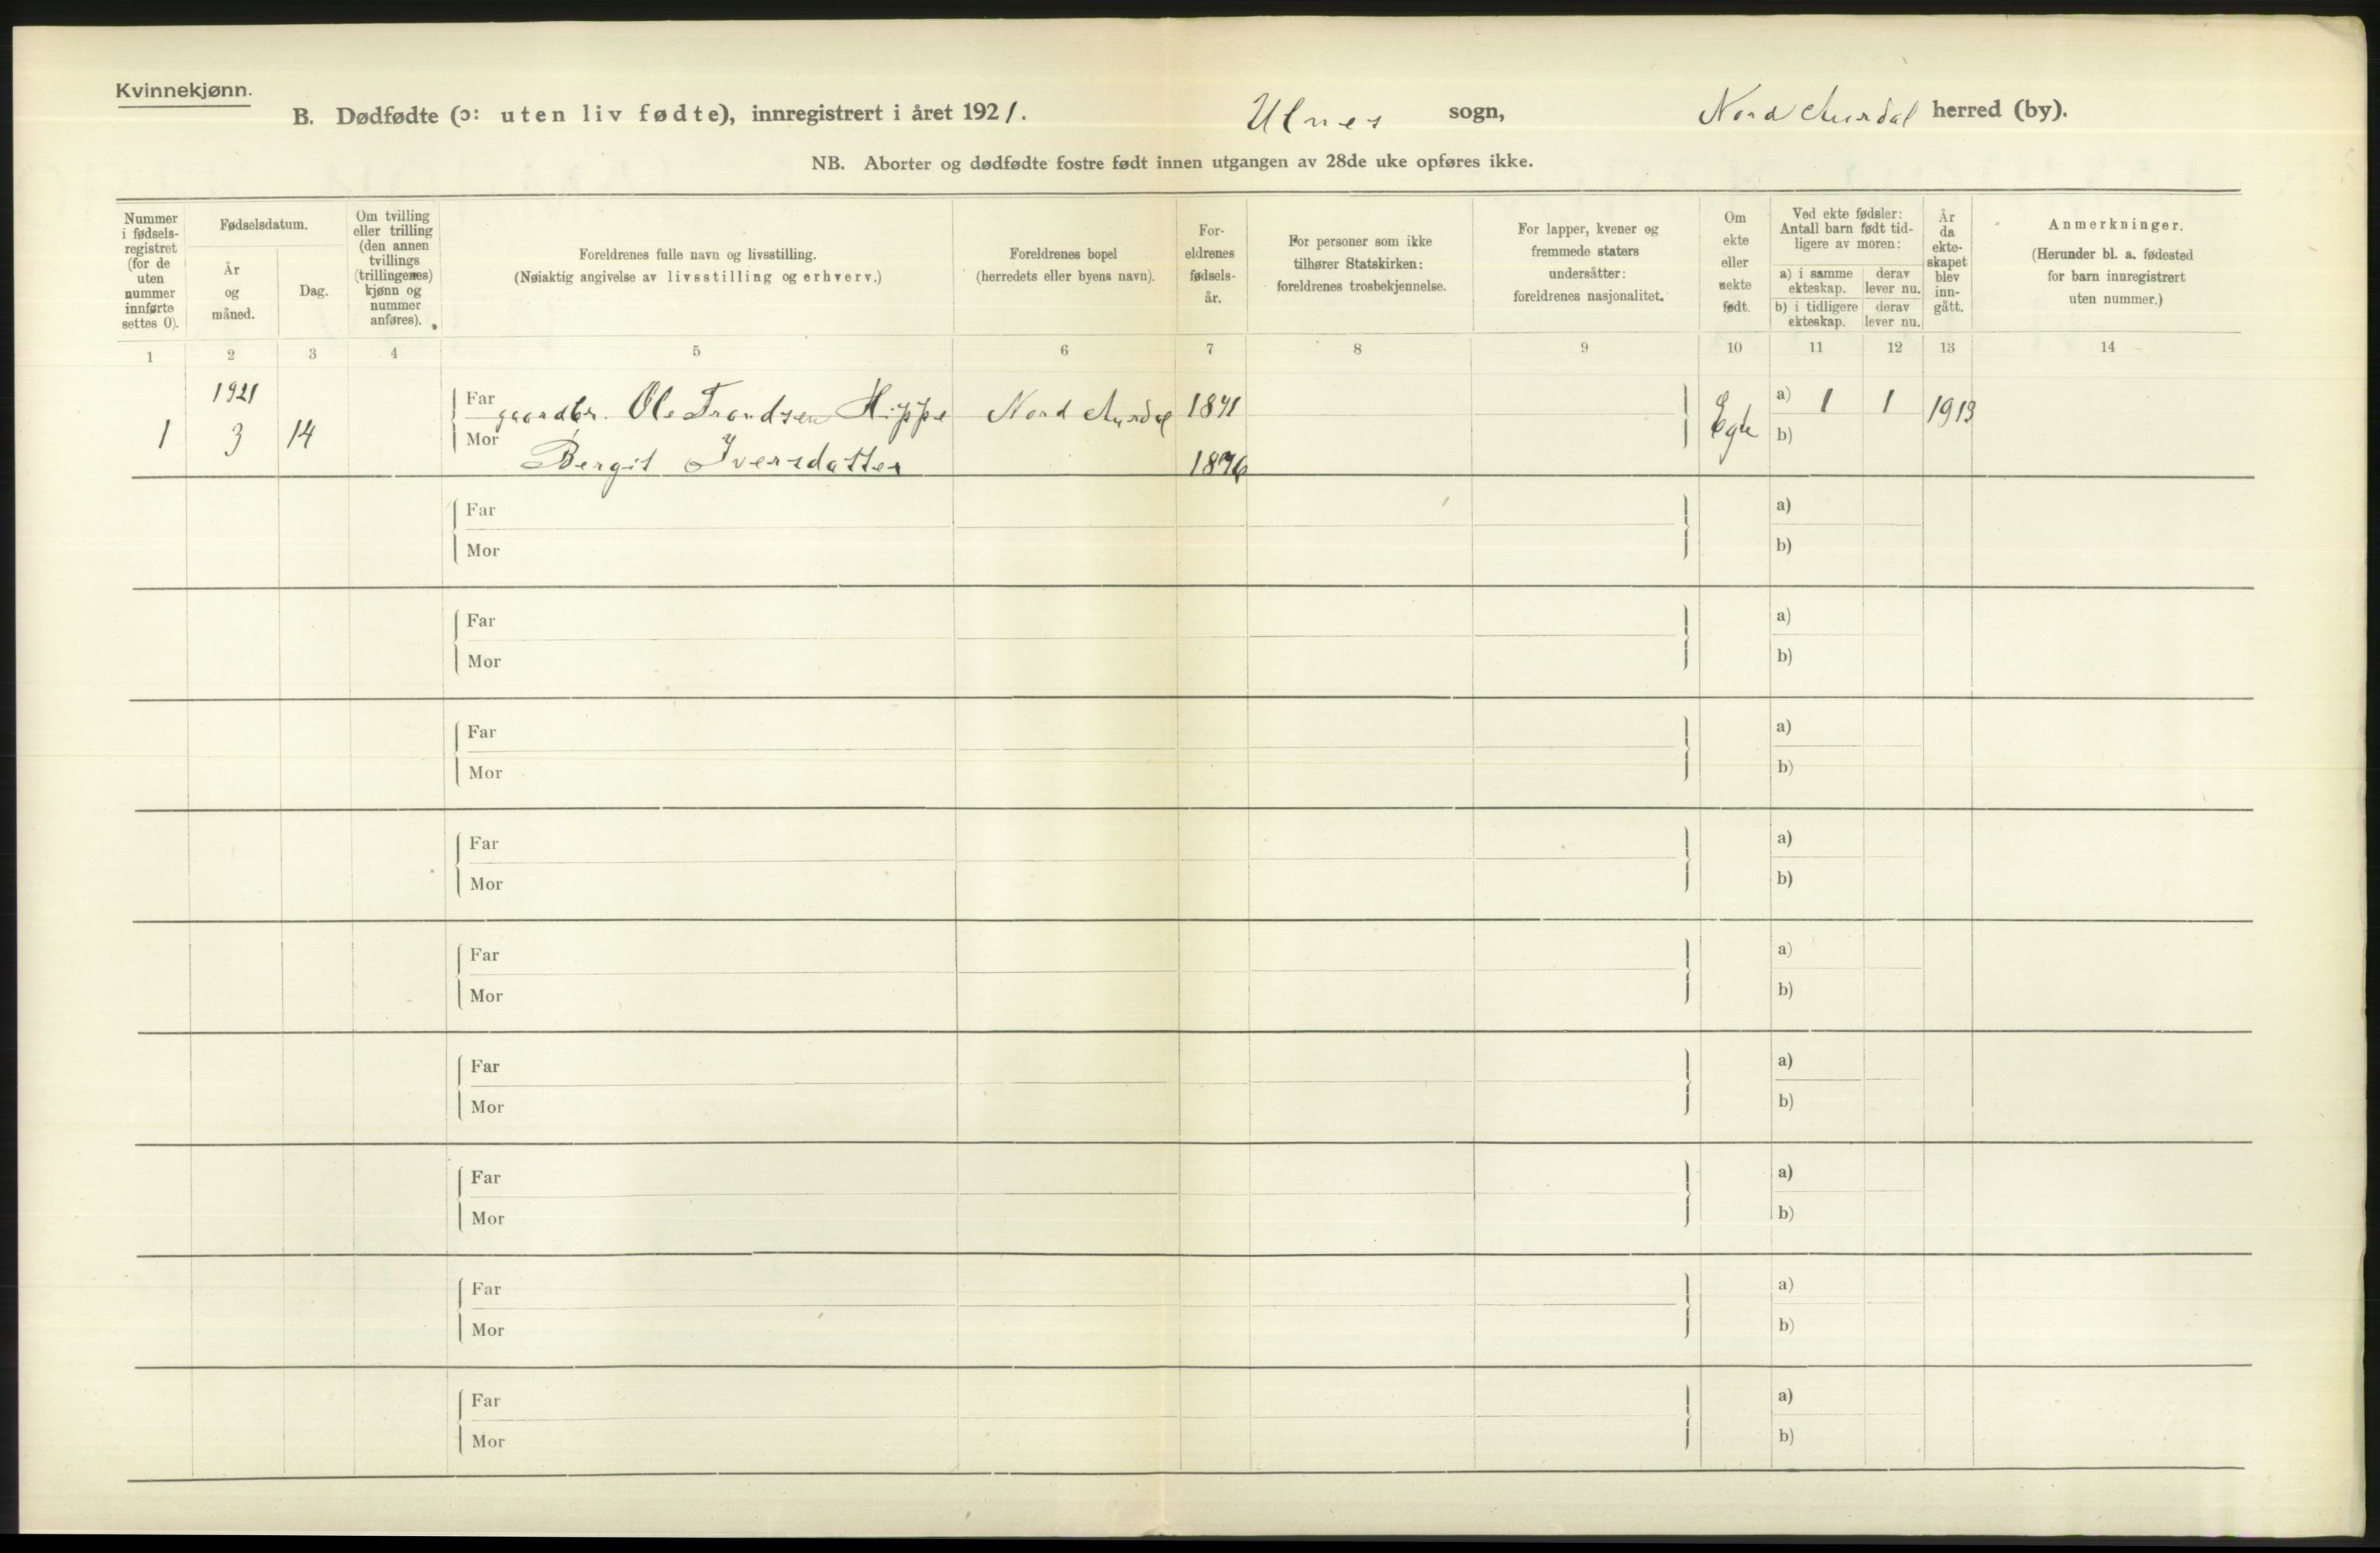 Kvinnekjønn.
B. Dødfødte (ɔ: uten liv fødte), innregistrert i året 1921. Ulnes sogn, Nord Aurdal herred (by).
NB. Aborter og dødfødte fostre født innen utgangen av 28de uke opføres ikke.
Nummer i fødsels-registret (for de uten nummer innførte settes 0).
Fødselsdatum.
År og måned.
Dag.
Om tvilling eller trilling (den annen tvillings (trillingenes) kjønn og nummer anføres).
Foreldrenes fulle navn og livsstilling.
(Nøiaktig angivelse av livsstilling og erhverv.)
Foreldrenes bopel
(herredets eller byens navn).
For-eldrenes fødsels-år.
For personer som ikke tilhører Statskirken: foreldrenes trosbekjennelse.
For lapper, kvener og fremmede staters undersåtter: foreldrenes nasjonalitet.
Om ekte eller uekte født.
Ved ekte fødsler: Antall barn født tid-ligere av moren:
a) i samme ekteskap. derav lever nu.
b) i tidligere ekteskap. derav lever nu.
År da ekte-skapet blev inn-gått.
Anmerkninger.
(Herunder bl. a. fødested for barn innregistrert uten nummer.)
1 2 3 4 5 6 7 8 9 10 11 12 13 14
1921
Far gaardbr. Ole Trondsen Hippe Nord Aurdal 1871 a) 1 1 1913
1 3 14 Mor Bergit Iversdatter 1876 Egte b)
Far a)
Mor b)
Far a)
Mor b)
Far a)
Mor b)
Far a)
Mor b)
Far a)
Mor b)
Far a)
Mor b)
Far a)
Mor b)
Far a)
Mor b)
Far a)
Mor b)